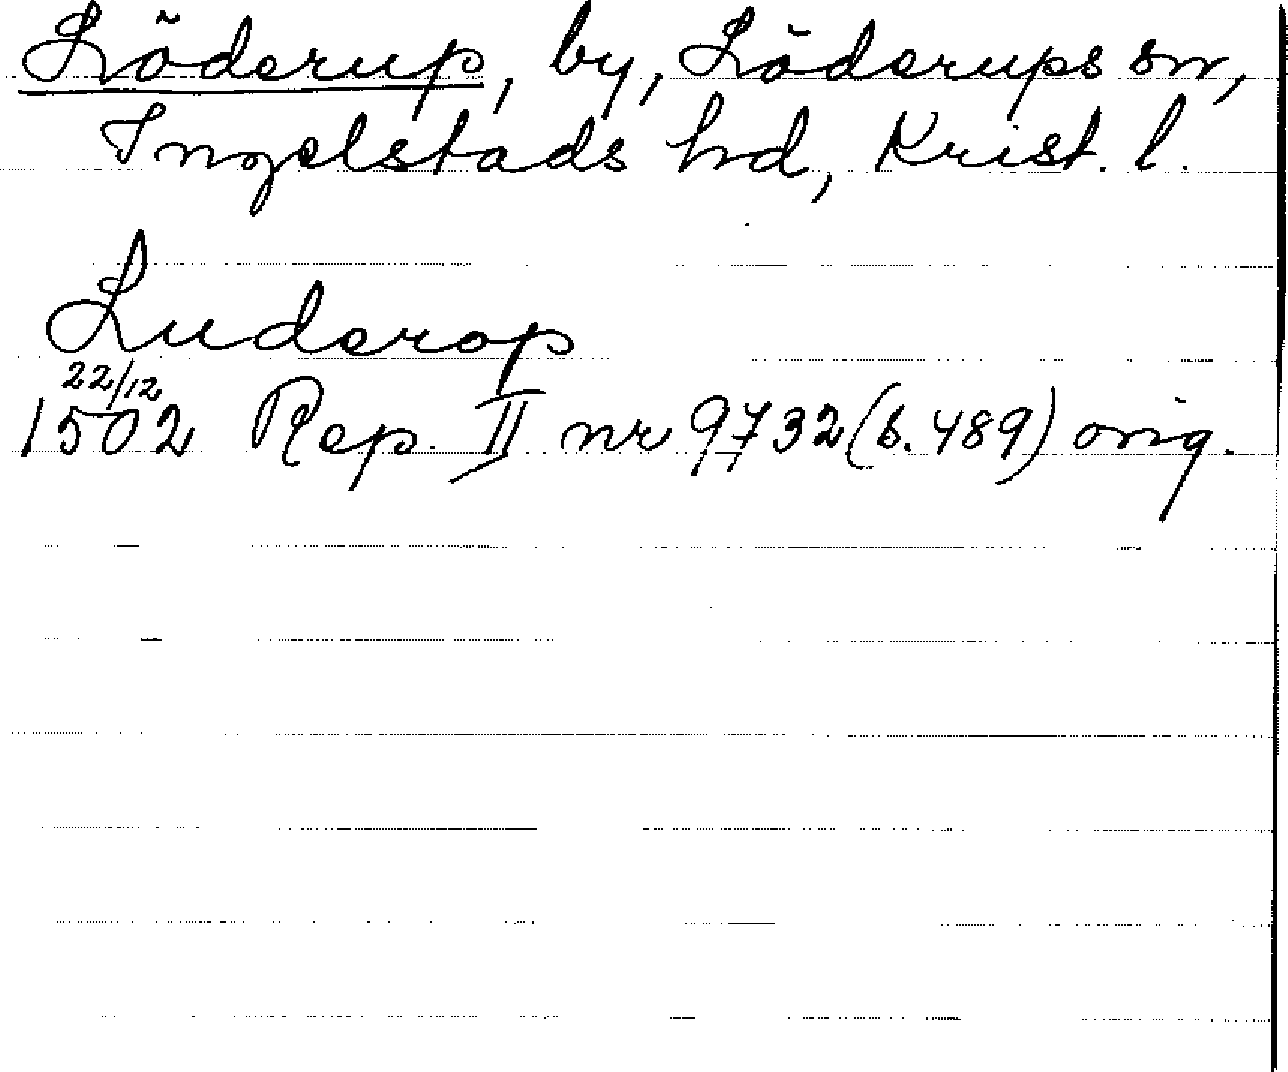 Löderup, by, Löderups sn,
Ingelstads hd, Krist. l.
Luderop
22/12
1502 Rep. II nr 9732 (b. 489) orig.